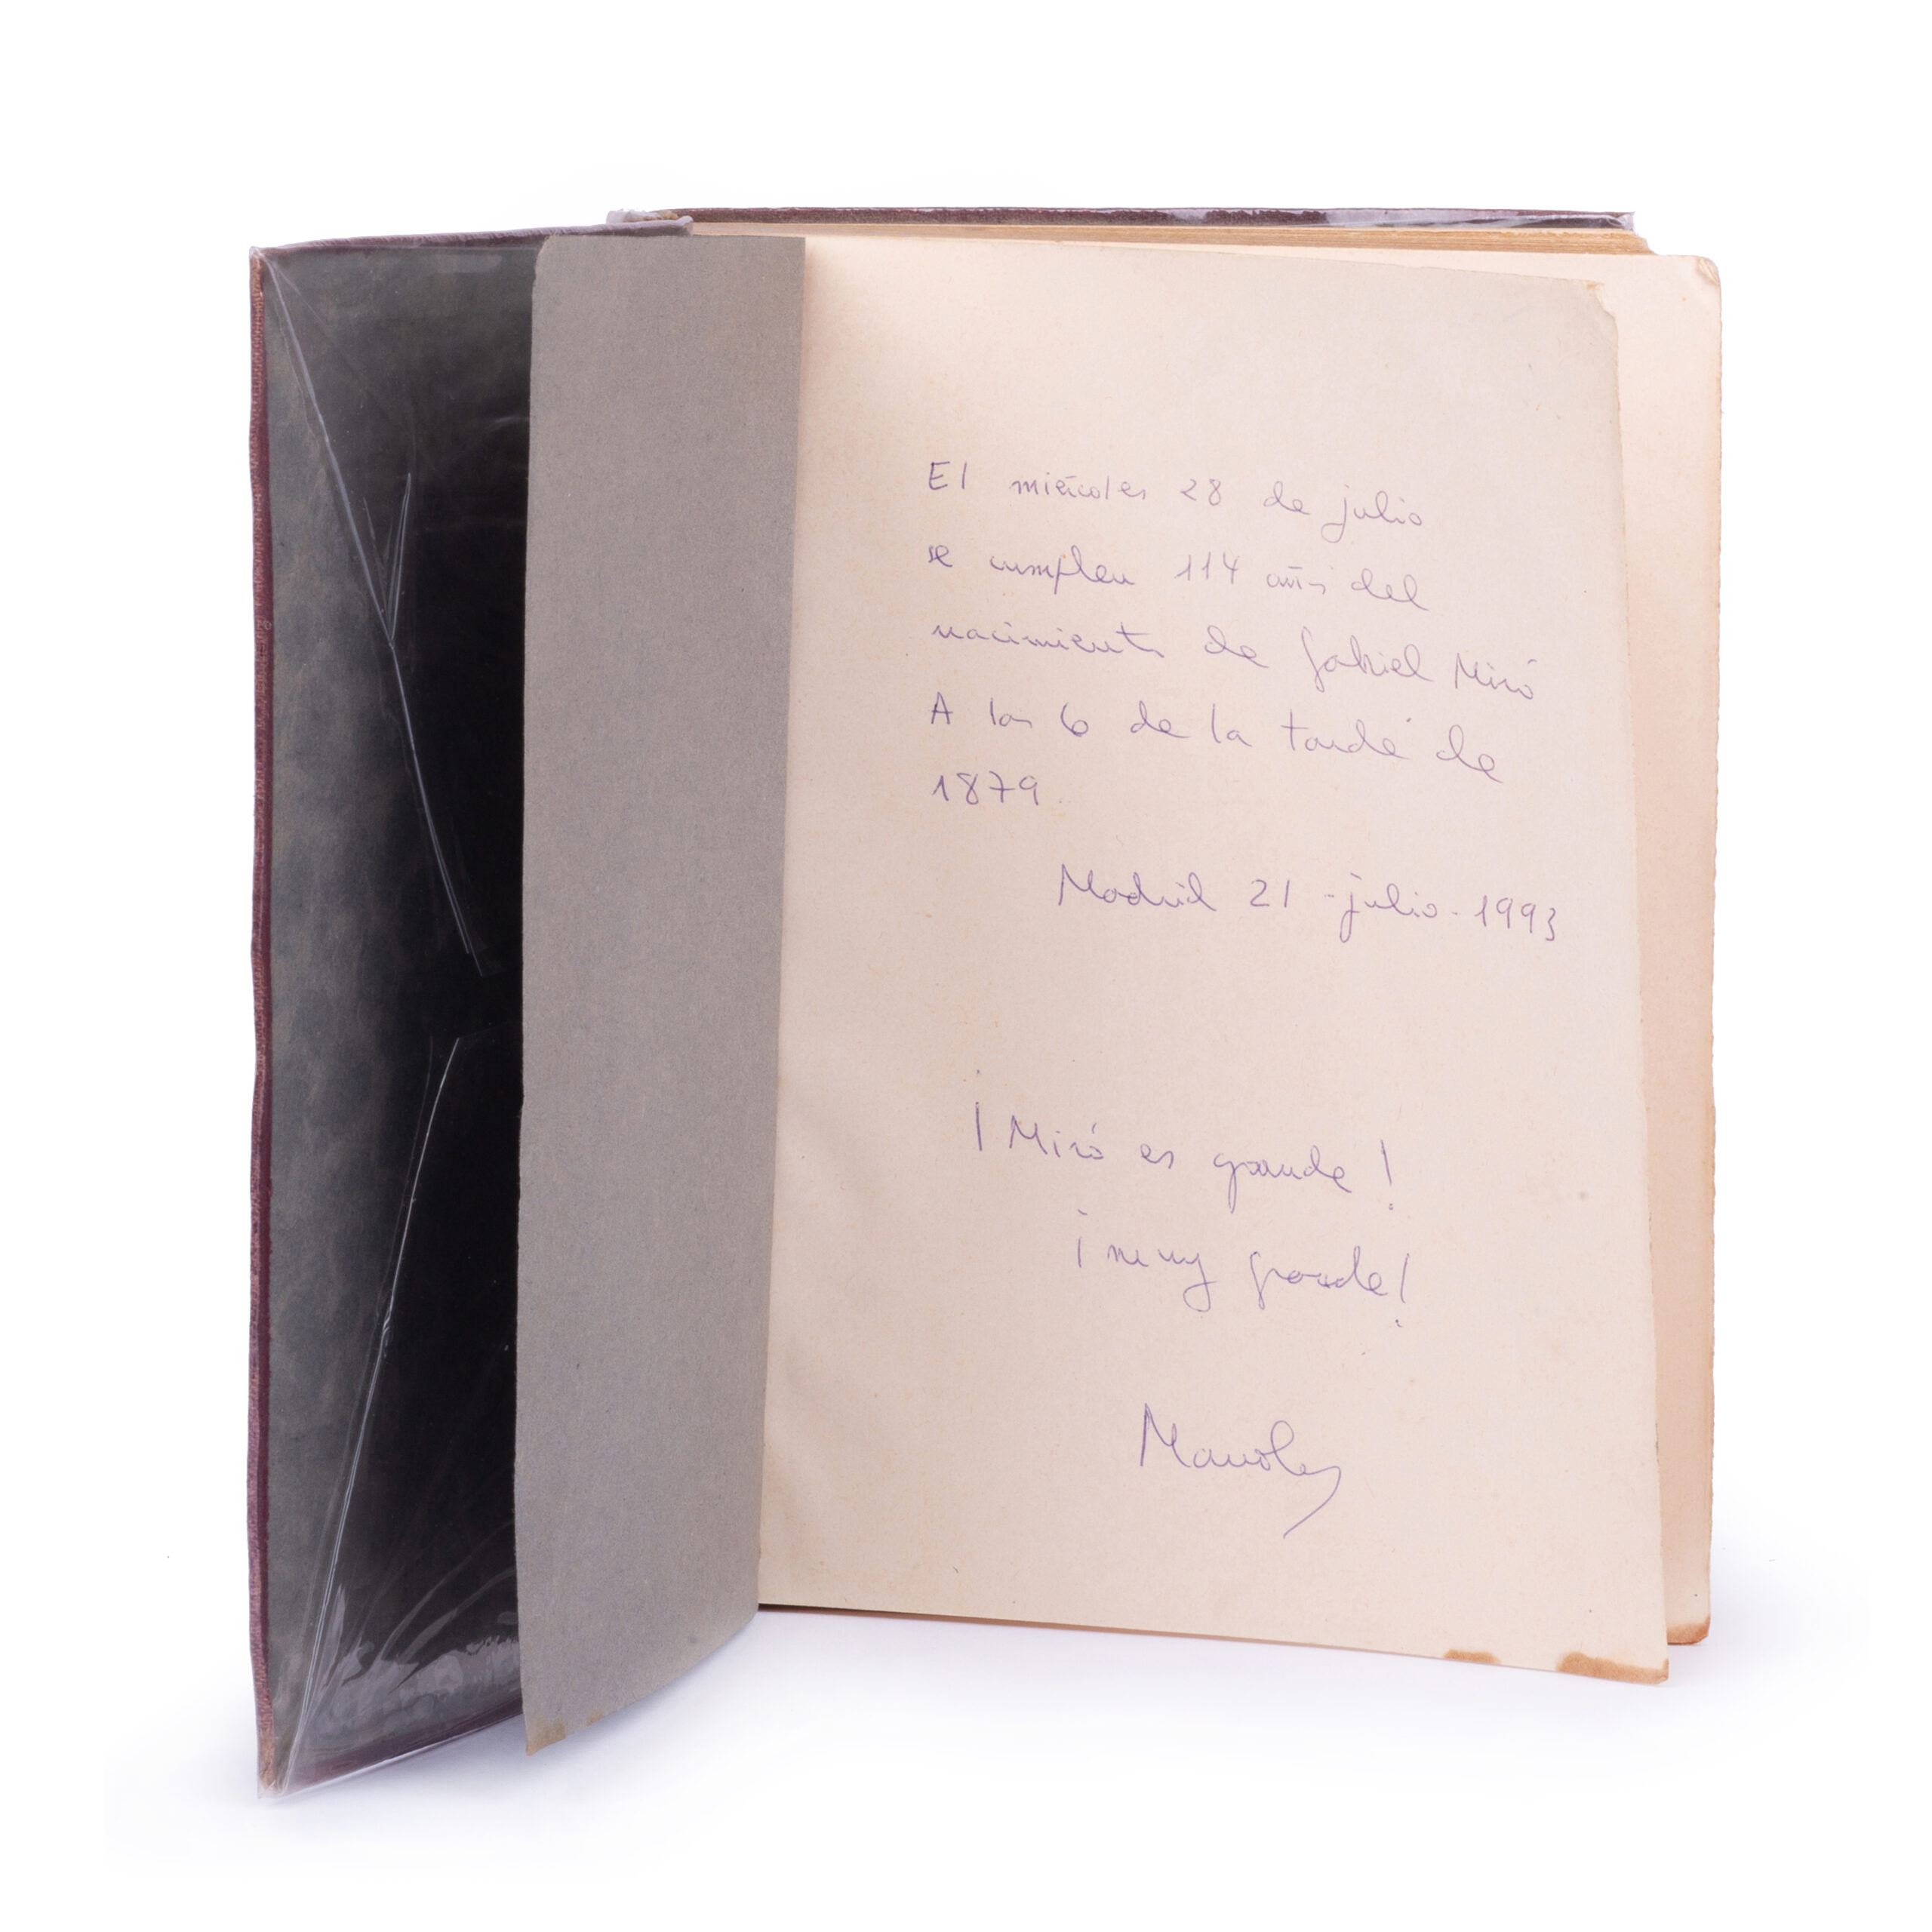 El miércoles 28 de julio
se cumplen 114 años del
nacimiento de Gabriel Miró
A las 6 de la tarde de
1879.
Madrid 21 - julio - 1993
¡Miró es grande!
¡muy grande!